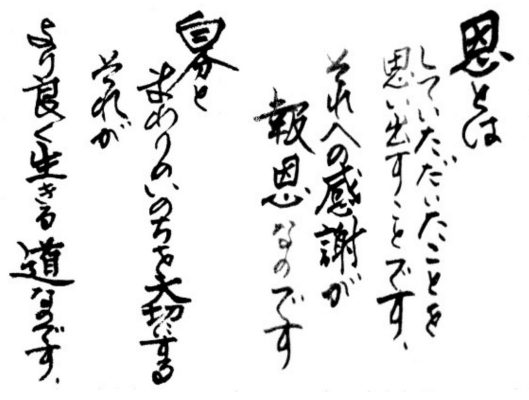 恩とは
していただいたことを
思い出すことです、
それへの感謝が
報恩なのです
自分と
まわりのいのちを大切にする
それが
より良く生きる道なのです、